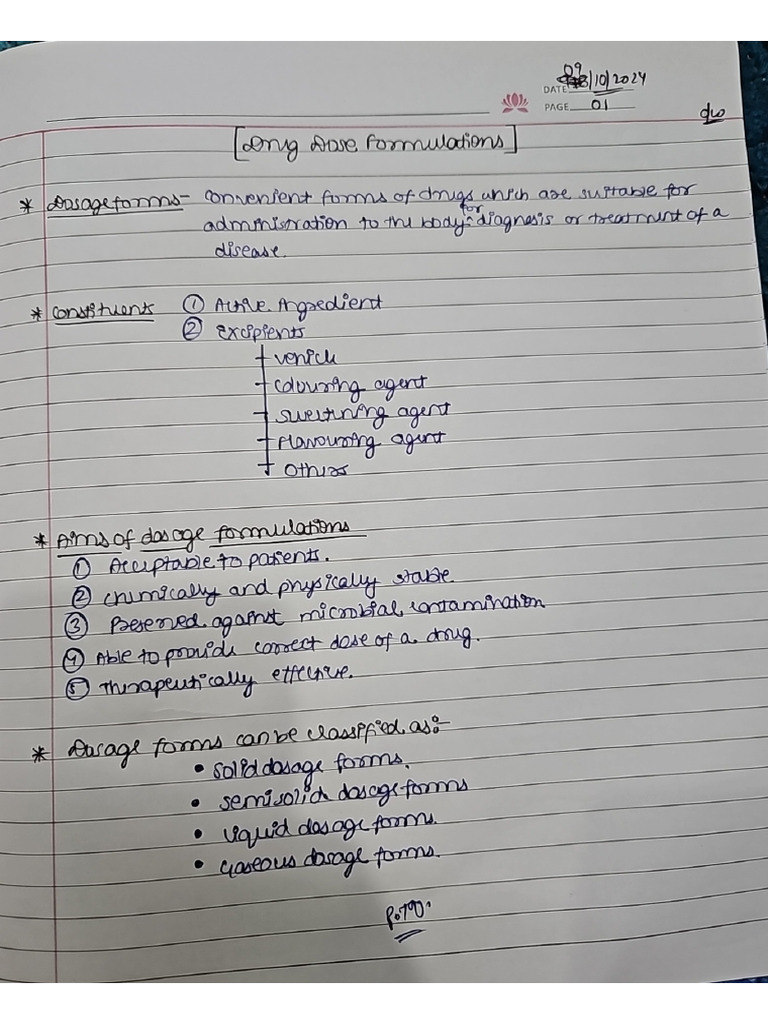 DATE 09/10/2024
PAGE 01
[Drug Dose Formulations]
* Dosage forms - convenient forms of drugs which are suitable for
administration to the body for diagnosis or treatment of a
disease.
* Constituents ① Active Ingredient
② Excipients
vehicle
colouring agent
sweetening agent
Flavouring agent
Others
* Aims of dosage formulations
① Acceptable to patients.
② chemically and physically stable.
③ Preserved against microbial contamination
④ Able to provide correct dose of a drug.
⑤ Therapeutically effective.
* Dosage forms can be classified as:-
• solid dosage forms.
• semisolid dosage forms
• Liquid dosage forms.
• Gaseous dosage forms.
P.T.O.